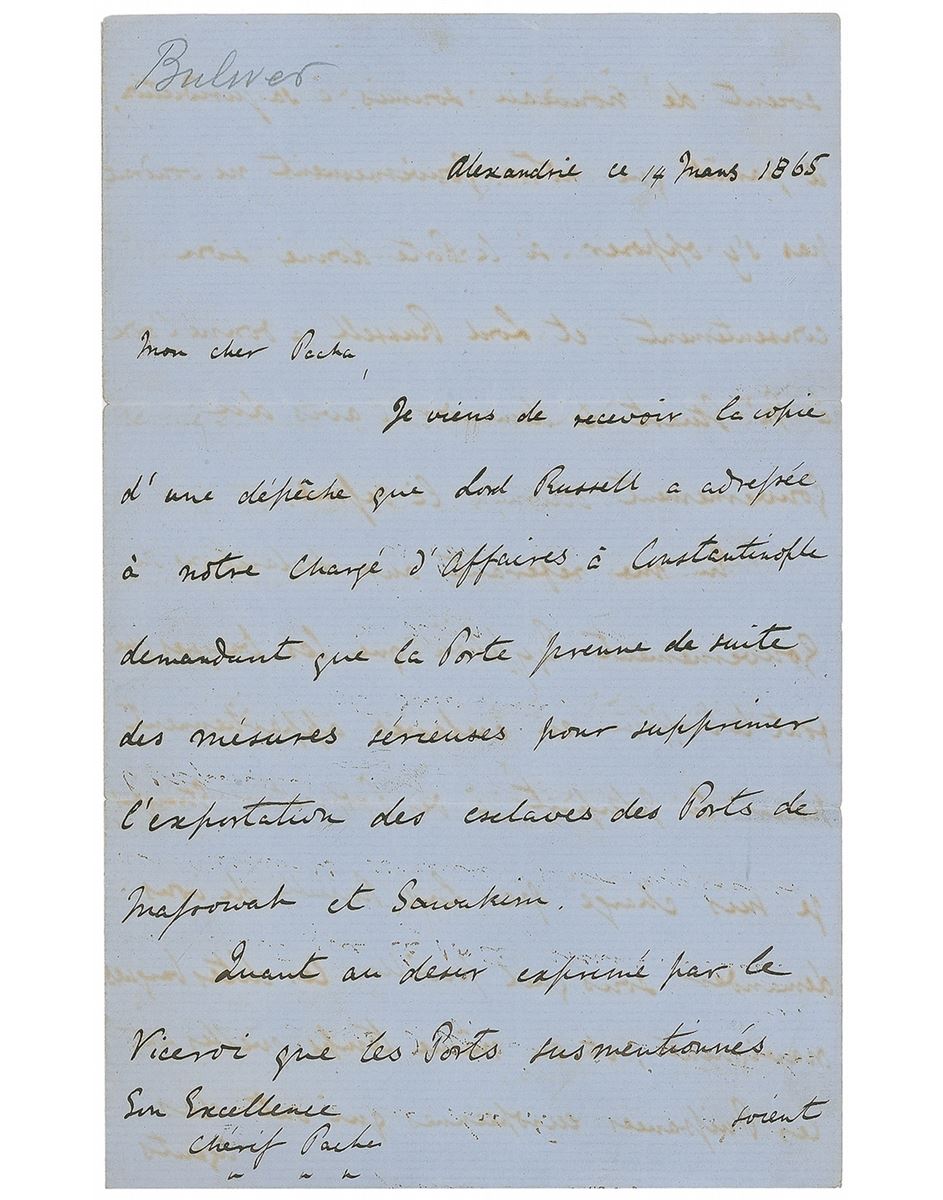 Bulwer
Alexandrie ce 14 Mars 1865
Mon cher Pacha,
Je viens de recevoir la copie
d'une dépêche que Lord Russell a adressée
à notre Chargé d'Affaires à Constantinople
demandant que la Porte prenne de suite
des mésures sérieuses pour supprimer
l'exportation des esclaves des Ports de
Massowah et Sawakim.
Quant au desir exprimé par le
Viceroi que les Ports susmentionnés
Son Excellence
soient
Chérif Pacha
" " "